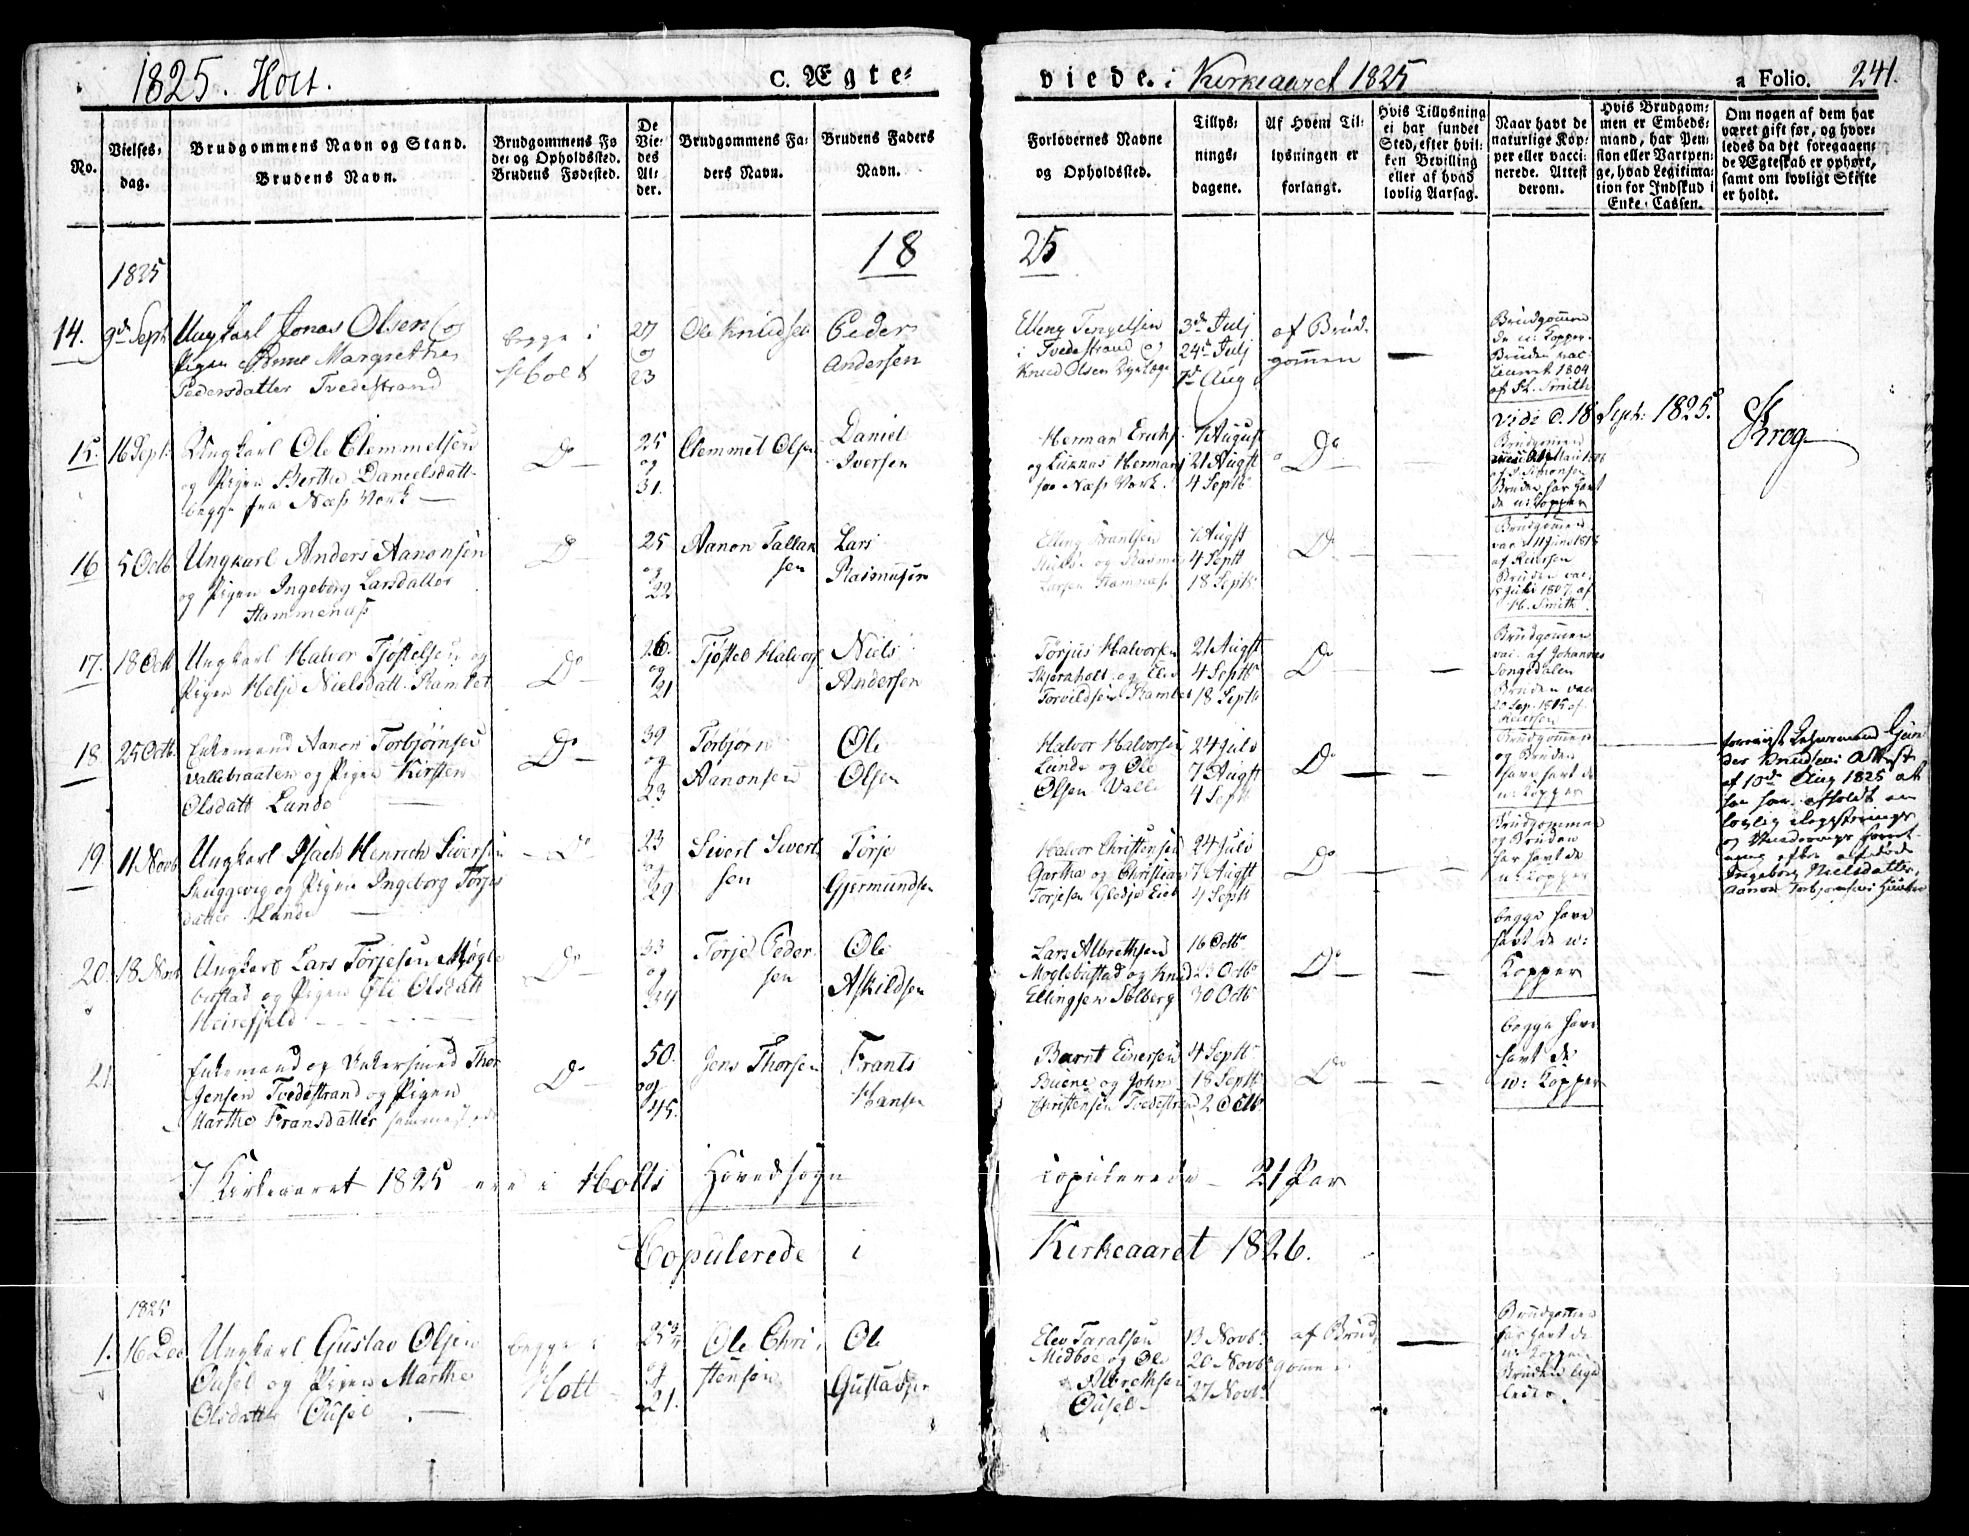 1825. Holt. C. Ægte=
viede. i Kirkeaaret 1825 a Folio. 241.
No.
Vielses-
dag.
Brudgommens Navn og Stand.
Brudens Navn.
Brudgommens Fø
de- og Opholdssted.
Brudens Fødested.
De
Vie-
des
Al-
der.
Brudgommens Fa-
ders Navn.
Brudens Faders
Navn.
Forlovernes Navne
og Opholdssted.
Tillys-
nings-
dagene.
Af Hvem Til-
lysningen er
forlangt.
Hvis Tillysning
ei har fundet
Sted, efter hvil-
ken Bevilling
eller af hvad
lovlig Aarsag.
Naar havt de
naturlige Kop-
per eller vacci-
nerede. Attest
derom.
Hvis Brudgom-
men er Embeds-
mand, har Pen-
sion eller Vartpen-
ge, hvad Legitima-
tion for Indskud i
Enke-Cassen.
Om nogen af dem har
været gift før, og hvor-
ledes da det foregaaen-
de Ægteskab er ophørt,
samt om lovligt Skifte
er holdt.
18 25
1825
14. 9de Sept
Ungkarl Jonas Olsen og
Pigen Margrethe
Pedersdatter Tvedestrand
begge i
Holt
27
og
23
Ole Knudsen
Peder
Andersen
Elleng Tengelsen
i Tvedestrand og
Knud Olsen
3de Julj
24de Julj
7de Aug
af Brud-
gommen
Brudgommen
de n: Kopper
Bruden vac-
cineret 1804
af H. Smith
Vidi d. 18 Sept: 1825.
Krog
15. 16 Sept:
Ungkarl Ole Clemmetsen
og Pigen Berthe Danielsdatt.
begge fra Næs Værk
Do
25
og
31.
Clemmet Olsen
Daniel
Iversen
Herman Erichs.
og Herman
fra Næs Værk.
7 August
21 Augst
4 Septb
Do
Brudgommen
af Simonsen
Bruden har havt
de n: Kopper
16 5 Octb
Ungkarl Anders Aanonsen
og Pigen Ingeborg Larsdatter
Hammenæss
Do
25
og
22
Aanon Tallak
sen
Lars
Rasmusen
7 Augst
4 Septb
18 Septb
Do
Brudgommen
af Reiersen
Bruden vac.
1807 af
H. Smith
17. 18 Octb
Ungkarl Halvor Tjøstelsen og
Pigen Helje Nielsdatt. Ramlet
Do
26.
og
21
Tjøstel Halvors
Niels
Andersen
Tørjus Halvorsen
Skjeraholt og Elev
Torvildsen Ramlet
21 Augst
4 Septb
18 Septb
Do
Brudgommen
vac. af Johannes
Songedalen
Bruden vac
20 Sep. 1815 af
Reiersen
18 25 Octb.
Enkemand Aanon Torbjørnsen
Vallebraaten og Pigen Kirsten
Olsdatt Lunde
Do
39
og
23
Torbjørn
Aanonsen
Ole
Olsen
Halvor Halvorsen
Lunde og Ole
Olsen Valle
24 Julv
7 Augst
4 Septb
Do
Brudgommen
og Bruden
have havt de
n: Kopper
foreviist Lehnsmand Gun-
der Knudsens Attest
af 10de Aug 1825 at
har afholdt en
lovlig Registrerings
og Vurderings Forret-
ning efter afdøde
Ingeborg Nielsdatter,
Aanon Torbjørnsens Hustru
19 11 Novb
Ungkarl Isach Henrich Siversen
Skuggevig og Pigen Ingeborg Tørjes
datter Lunde
Do
23
og
29
Sivert Sivert
sen
Tørje
Gjermundsen
Halvor Christensen
Gartha og Christian
Torjesen Gledje Eieb
24 Julv
7 Augst
4 Septb
Do
Brudgommen
og Bruden
har havt de
n: Kopper
20. 18 Novb
Ungkarl Lars Tørjesen Møgle
bustad og Pigen Oli Olsdatt
Heirefjeld
Do
33
og
34
Tørje Peder
sen
Ole
Askildsen
Lars Albrethsen
Møglebustad og Knud
Ellingsen Solberg
16 Octb
23 Octb
30 Octb
Do
begge have
havt de n:
Kopper
21
Enkemand og Thor
Jensen Tvedestrand og Pigen
Marthe Fransdatter sammesteds
Do
50.
og
45.
Jens Thorsen
Frants
Hansen
Barnt Einersen
Buene og John
Christensen Tvedestrand
4 Septb
18 Septb
2 Octb.
Do
begge have
havt de
n: Kopper
I Kirkeaaret 1825 ere i Holts Hovedsogn copulerede 21 Par
Copulerede i Kirkeaaret 1826.
1825
1. 16 Dec
Ungkarl Gustav Olsen
Ousel og Pigen Marthe
Olsdatter Ousel
begge i
Holt
25
og
21.
Ole Chri
stensen
Ole
Gustadsen
Elev Taralsen
Midboe og Ole
Albrethsen
Ousel
13 Novbr
20 Novbr
27 Novbr
af Brud-
gommen
Brudgommen
har havt de
n: Kopper
Bruden lige
ledes.